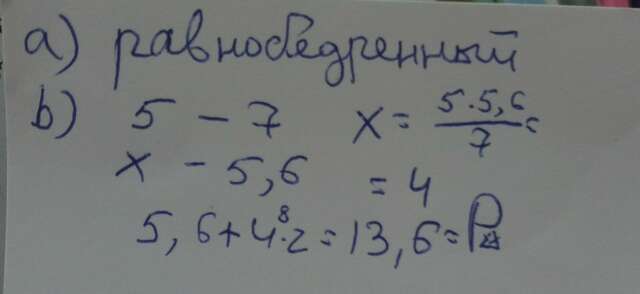 а) равнобедренный
b) 5 – 7 x = 5·5,6/7 =
x – 5,6 = 4
5,6+4·2=13,6=P